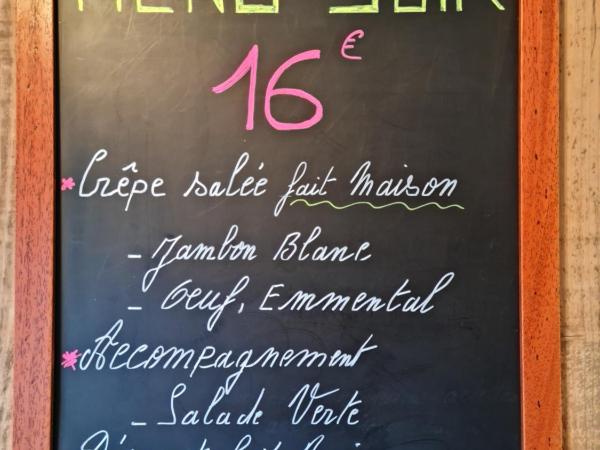 MENU SOIR
16 €
* Crêpe salée fait Maison
- Jambon Blanc
- Oeuf, Emmental
* Accompagnement
- Salade Verte